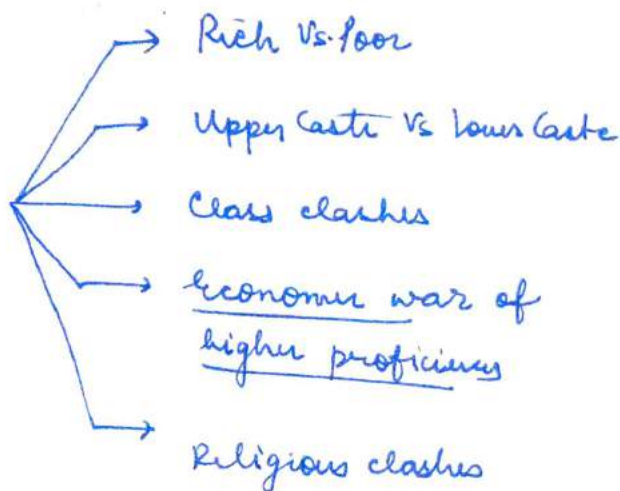 Rich Vs. Poor
Upper Caste Vs Lower Caste
Class clashes
Economic war of
higher proficiency
Religious clashes